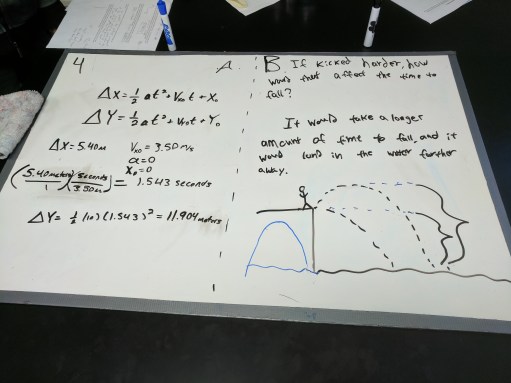 4
A.
ΔX = 1/2 at² + Vₓ₀t + X₀
ΔY = 1/2 at² + Vᵧ₀t + Y₀
ΔX = 5.40m Vₓ₀ = 3.50 m/s
a = 0
X₀ = 0
(5.40 meters / 1)(seconds / 3.50m) = 1.543 seconds
ΔY = 1/2 (10)(1.543)² = 11.904 meters
B If kicked harder, how
would that affect the time to
fall?
It would take a longer
amount of time to fall, and it
would land in the water further
away.